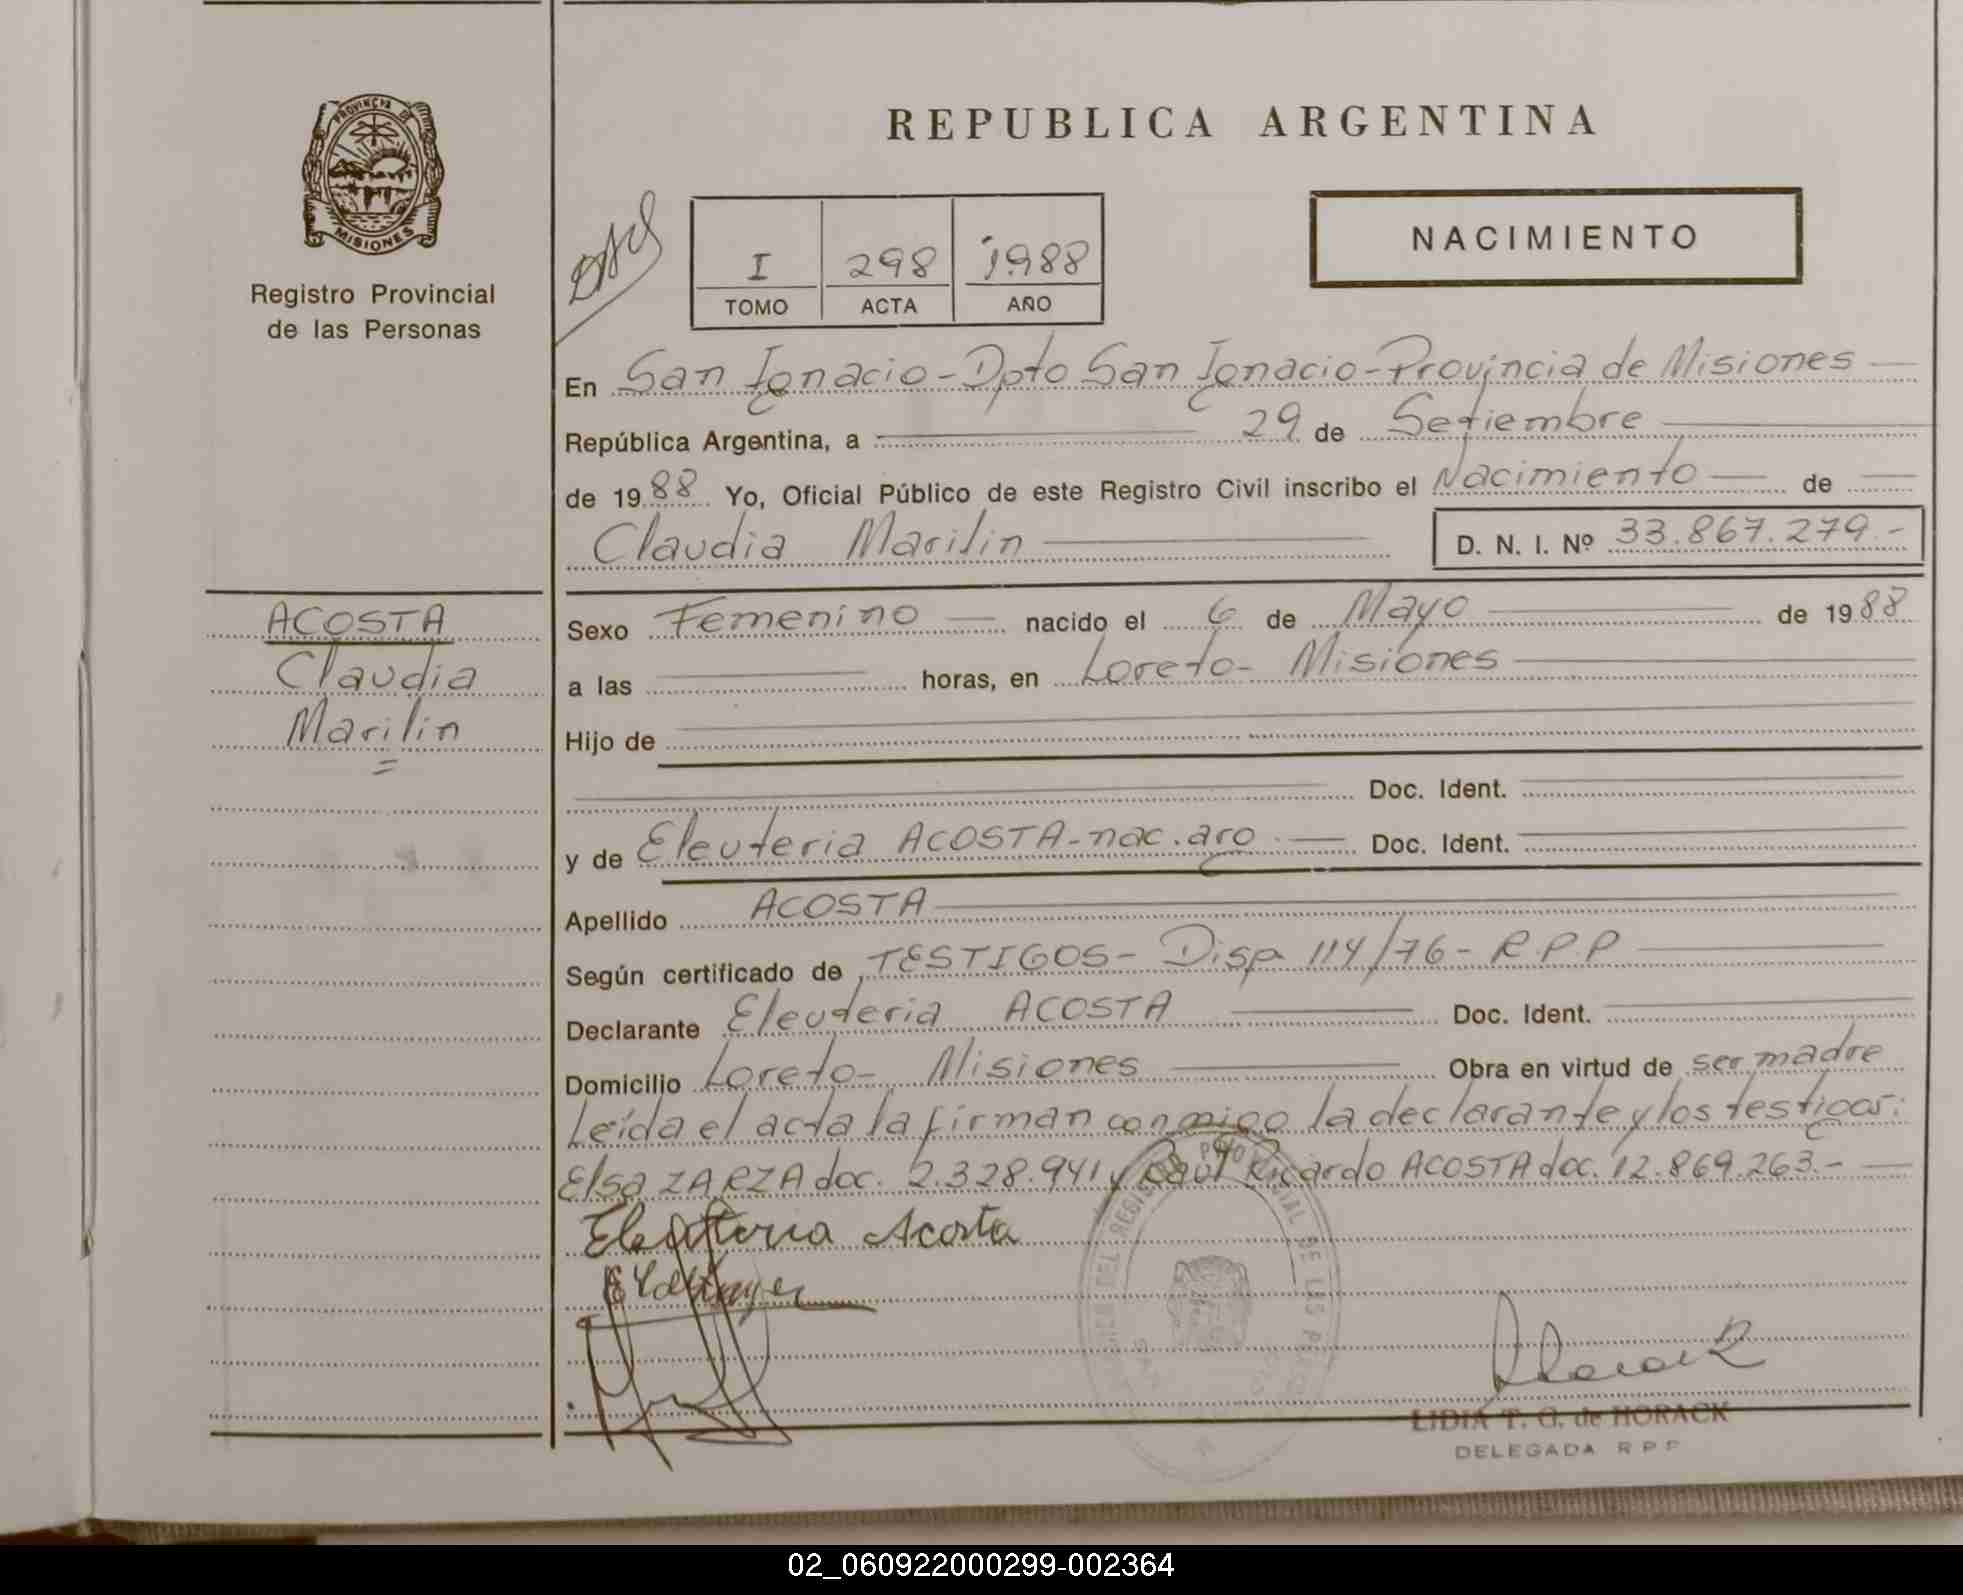 PROVINCIA DE
MISIONES
Registro Provincial
de las Personas
REPUBLICA ARGENTINA
I 298 1988
TOMO ACTA AÑO
NACIMIENTO
En San Ignacio - Dpto San Ignacio - Provincia de Misiones
República Argentina, a 29 de Setiembre
de 1988 Yo, Oficial Público de este Registro Civil inscribo el Nacimiento de
Claudia Marilin
D. N. I. Nº 33.867.279.-
ACOSTA
Claudia
Marilin
Sexo Femenino nacido el 6 de Mayo de 1988
a las horas, en Loreto - Misiones
Hijo de
Doc. Ident.
y de Eleuteria ACOSTA - nac. arg Doc. Ident.
Apellido ACOSTA
Según certificado de TESTIGOS - Disp 114/76 - R.P.P
Declarante Eleuteria ACOSTA Doc. Ident.
Domicilio Loreto - Misiones Obra en virtud de ser madre
Leída el acta la firman conmigo la declarante y los testigos:
Elsa ZARZA doc. 2.328.941 y Raúl Ricardo ACOSTA doc. 12.869.263.-
Eleuteria Acosta
LIDIA T. G. de HORACK
DELEGADA R P P
02_060922000299-002364